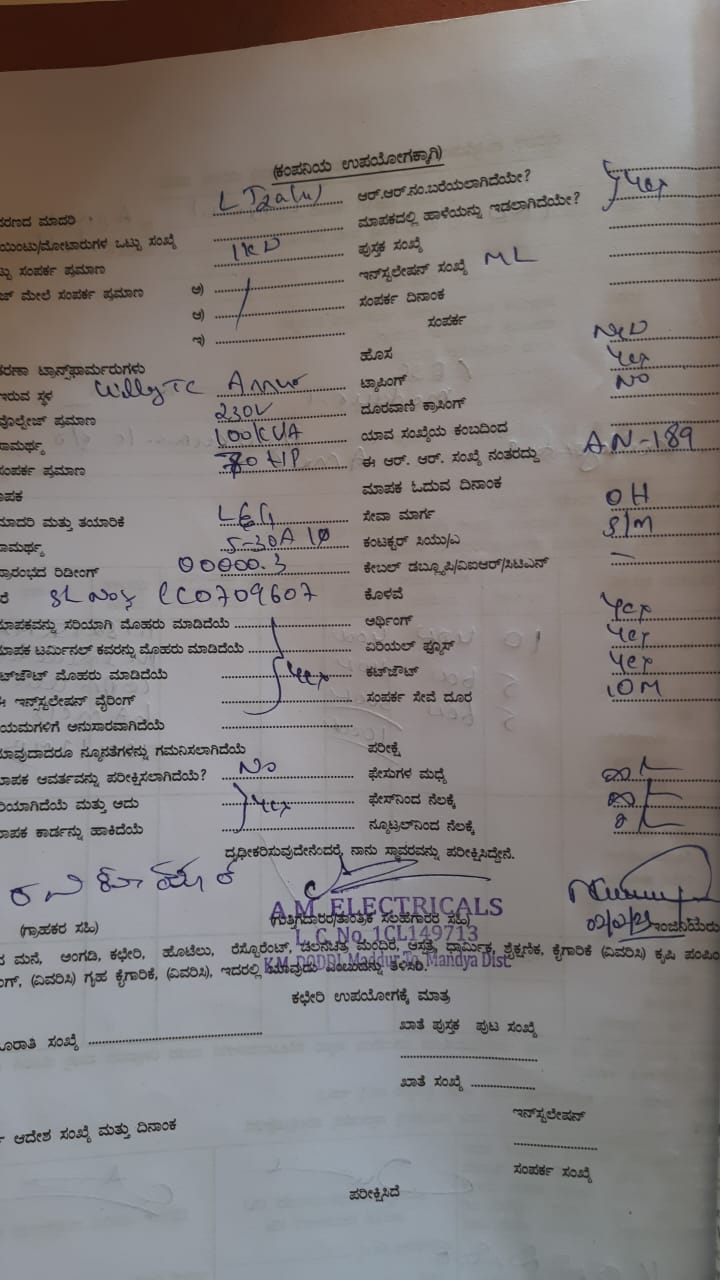 (ಕಂಪನಿಯ ಉಪಯೋಗಕ್ಕಾಗಿ)
ರಣದ ಮಾದರಿ LT2a(ii) ಆರ್.ಆರ್.ನಂ.ಬರೆಯಲಾಗಿದೆಯೇ? Yes
ಯಿಂಟು/ಮೋಟಾರುಗಳ ಒಟ್ಟು ಸಂಖ್ಯೆ ಮಾಪಕದಲ್ಲಿ ಹಾಳೆಯನ್ನು ಇಡಲಾಗಿದೆಯೇ?
ಟ್ಟು ಸಂಪರ್ಕ ಪ್ರಮಾಣ 1KW ಪುಸ್ತಕ ಸಂಖ್ಯೆ
ಜ್ ಮೇಲೆ ಸಂಪರ್ಕ ಪ್ರಮಾಣ ಅ) ಇನ್‌ಸ್ಟಲೇಷನ್ ಸಂಖ್ಯೆ ML
ಆ) ಸಂಪರ್ಕ ದಿನಾಂಕ
ಇ) ಸಂಪರ್ಕ
ತರಣಾ ಟ್ರಾನ್ಸ್‌ಫಾರ್ಮರುಗಳು ಹೊಸ
ಇರುವ ಸ್ಥಳ TC ಟ್ಯಾಪಿಂಗ್ Yes
ವೊಲ್ಟೇಜ್ ಪ್ರಮಾಣ 230V ದೂರವಾಣಿ ಕ್ರಾಸಿಂಗ್ NO
ಸಾಮರ್ಥ್ಯ 100KVA ಯಾವ ಸಂಖ್ಯೆಯ ಕಂಬದಿಂದ
ಸಂಪರ್ಕ ಪ್ರಮಾಣ HP ಈ ಆರ್. ಆರ್. ಸಂಖ್ಯೆ ನಂತರದ್ದು AN-189
ಾಪಕ ಮಾಪಕ ಓದುವ ದಿನಾಂಕ
ಮಾದರಿ ಮತ್ತು ತಯಾರಿಕೆ L&G ಸೇವಾ ಮಾರ್ಗ OH
ಸಾಮರ್ಥ್ಯ 5-30A 1Ø ಕಂಟಕ್ಟರ್ ಸಿಯು/ಎ S/M
ಪ್ರಾರಂಭದ ರಿಡೀಂಗ್ 00000.3 ಕೇಬಲ್ ಡಬ್ಲ್ಯೂಪಿ/ವಿಐಆರ್/ಸಿಟಿಎಸ್ —
SL No: CC0709607 ಕೊಳವೆ
ಮಾಪಕವನ್ನು ಸರಿಯಾಗಿ ಮೊಹರು ಮಾಡಿದೆಯೆ ಅರ್ಥಿಂಗ್ Yes
ಮಾಪಕ ಟರ್ಮಿನಲ್ ಕವರನ್ನು ಮೊಹರು ಮಾಡಿದೆಯೆ ಏರಿಯಲ್ ಫ್ಯೂಸ್ Yes
ಟ್‌ಔಟ್ ಮೊಹರು ಮಾಡಿದೆಯೆ Yes ಕಟ್‌ಔಟ್ Yes
ಈ ಇನ್‌ಸ್ಟಲೇಷನ್ ವೈರಿಂಗ್ ಸಂಪರ್ಕ ಸೇವೆ ದೂರ 10M
ಯಮಗಳಿಗೆ ಅನುಸಾರವಾಗಿದೆಯೆ
ಯಾವುದಾದರೂ ನ್ಯೂನತೆಗಳನ್ನು ಗಮನಿಸಲಾಗಿದೆಯೆ ಪರೀಕ್ಷೆ
ಮಾಪಕ ಆವರ್ತವನ್ನು ಪರೀಕ್ಷಿಸಲಾಗಿದೆಯೆ? No ಫೇಸುಗಳ ಮಧ್ಯೆ
ರಿಯಾಗಿದೆಯೆ ಮತ್ತು ಅದು Yes ಫೇಸ್‌ನಿಂದ ನೆಲಕ್ಕೆ
ಮಾಪಕ ಕಾರ್ಡನ್ನು ಹಾಕಿದೆಯೆ ನ್ಯೂಟ್ರಲ್‌ನಿಂದ ನೆಲಕ್ಕೆ
ದೃಢೀಕರಿಸುವುದೇನೆಂದರೆ, ನಾನು ಸ್ಥಾವರವನ್ನು ಪರೀಕ್ಷಿಸಿದ್ದೇನೆ.
A.M. ELECTRICALS
(ಗ್ರಾಹಕರ ಸಹಿ) (ಗುತ್ತಿಗೆದಾರರ/ತಾಂತ್ರಿಕ ಸಲಹೆಗಾರರ ಸಹಿ) ಇಂಜಿನಿಯರು
L.C.No.1CL149713
ಮನೆ, ಅಂಗಡಿ, ಕಛೇರಿ, ಹೊಟೆಲು, ರೆಸ್ಟೊರೆಂಟ್, ಚಲನಚಿತ್ರ ಮಂದಿರ, ಆಸ್ಪತ್ರೆ, ಧಾರ್ಮಿಕ, ಶೈಕ್ಷಣಿಕ, ಕೈಗಾರಿಕೆ (ವಿವರಿಸಿ) ಕೃಷಿ ಪಂಪಿಂ
ಂಗ್, (ವಿವರಿಸಿ) ಗೃಹ ಕೈಗಾರಿಕೆ, (ವಿವರಿಸಿ), ಇದರಲ್ಲಿ ಯಾವುದು ಎಂಬುದನ್ನು ತಿಳಿಸಿರಿ.
K.M. DODDI, Maddur Tq, Mandya Dist.
ಕಛೇರಿ ಉಪಯೋಗಕ್ಕೆ ಮಾತ್ರ
ಸಂಖ್ಯೆ ಖಾತೆ ಪುಸ್ತಕ ಪುಟ ಸಂಖ್ಯೆ
ಖಾತೆ ಸಂಖ್ಯೆ
ಆದೇಶ ಸಂಖ್ಯೆ ಮತ್ತು ದಿನಾಂಕ ಇನ್‌ಸ್ಟಲೇಷನ್
ಸಂಪರ್ಕ ಸಂಖ್ಯೆ
ಪರೀಕ್ಷಿಸಿದೆ